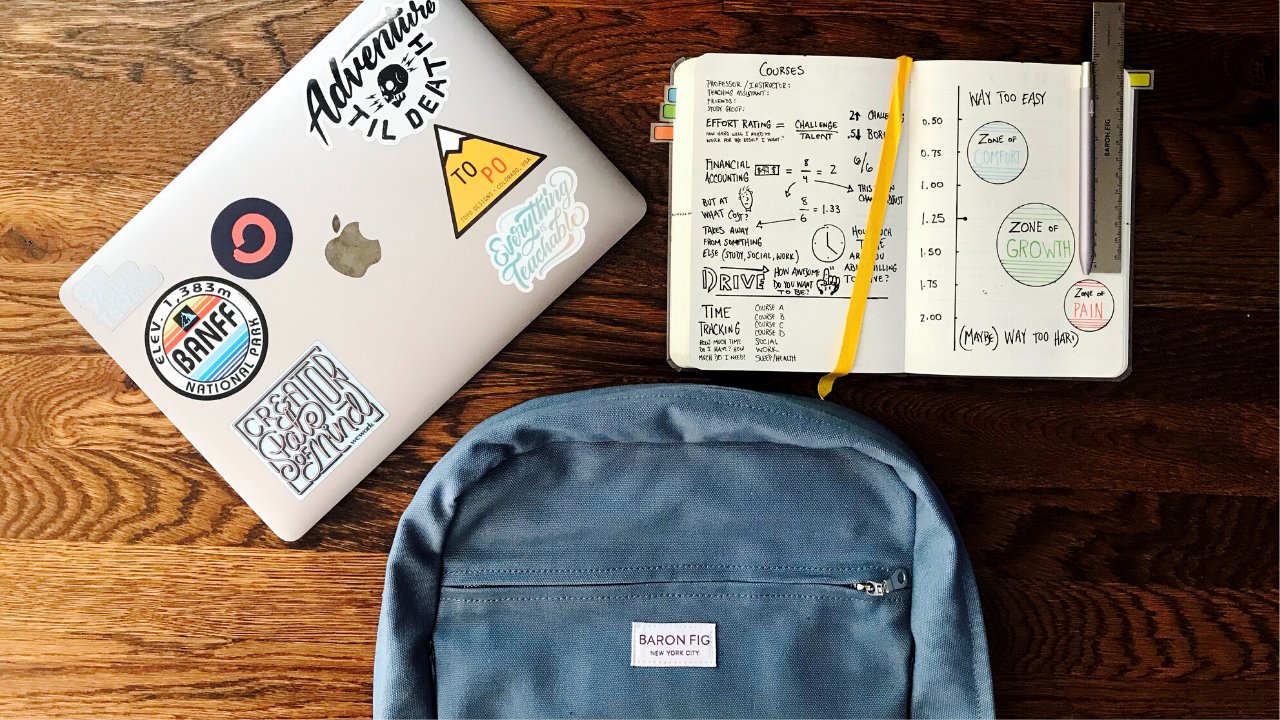 Adventure
'TIL DEATH
TOPO
TOPO DESIGNS • COLORADO, USA
Everything
is
Teachable
ELEV. 1,383m
BANFF
NATIONAL PARK
CREATOR
State
OF Mind
wework
COURSES
PROFESSOR / INSTRUCTOR:
TEACHING ASSISTANT:
FRIENDS:
STUDY GROUP:
EFFORT RATING = CHALLENGE
TALENT
HOW HARD WILL I NEED TO
WORK FOR THE RESULT I WANT
2↑
.5↓
FINANCIAL
ACCOUNTING
$$$
= 8
4
= 2
6/6
THIS
BUT AT
WHAT COST?
8
6
= 1.33
TAKES AWAY
FROM SOMETHING
ELSE (STUDY, SOCIAL, WORK)
HOW MUCH
ARE YOU
DRIVE
HOW AWESOME
DO YOU WANT
TO BE?
TIME
TRACKING
HOW MUCH TIME
DO I HAVE? HOW
MUCH DO I NEED?
COURSE A
COURSE B
COURSE C
COURSE D
SOCIAL
WORK
SLEEP/HEALTH
WAY TOO EASY
0.50
0.75
1.00
1.25
1.50
1.75
2.00
ZONE OF
COMFORT
ZONE OF
GROWTH
ZONE OF
PAIN
(MAYBE) WAY TOO HARD
BARON FIG
BARON FIG
NEW YORK CITY